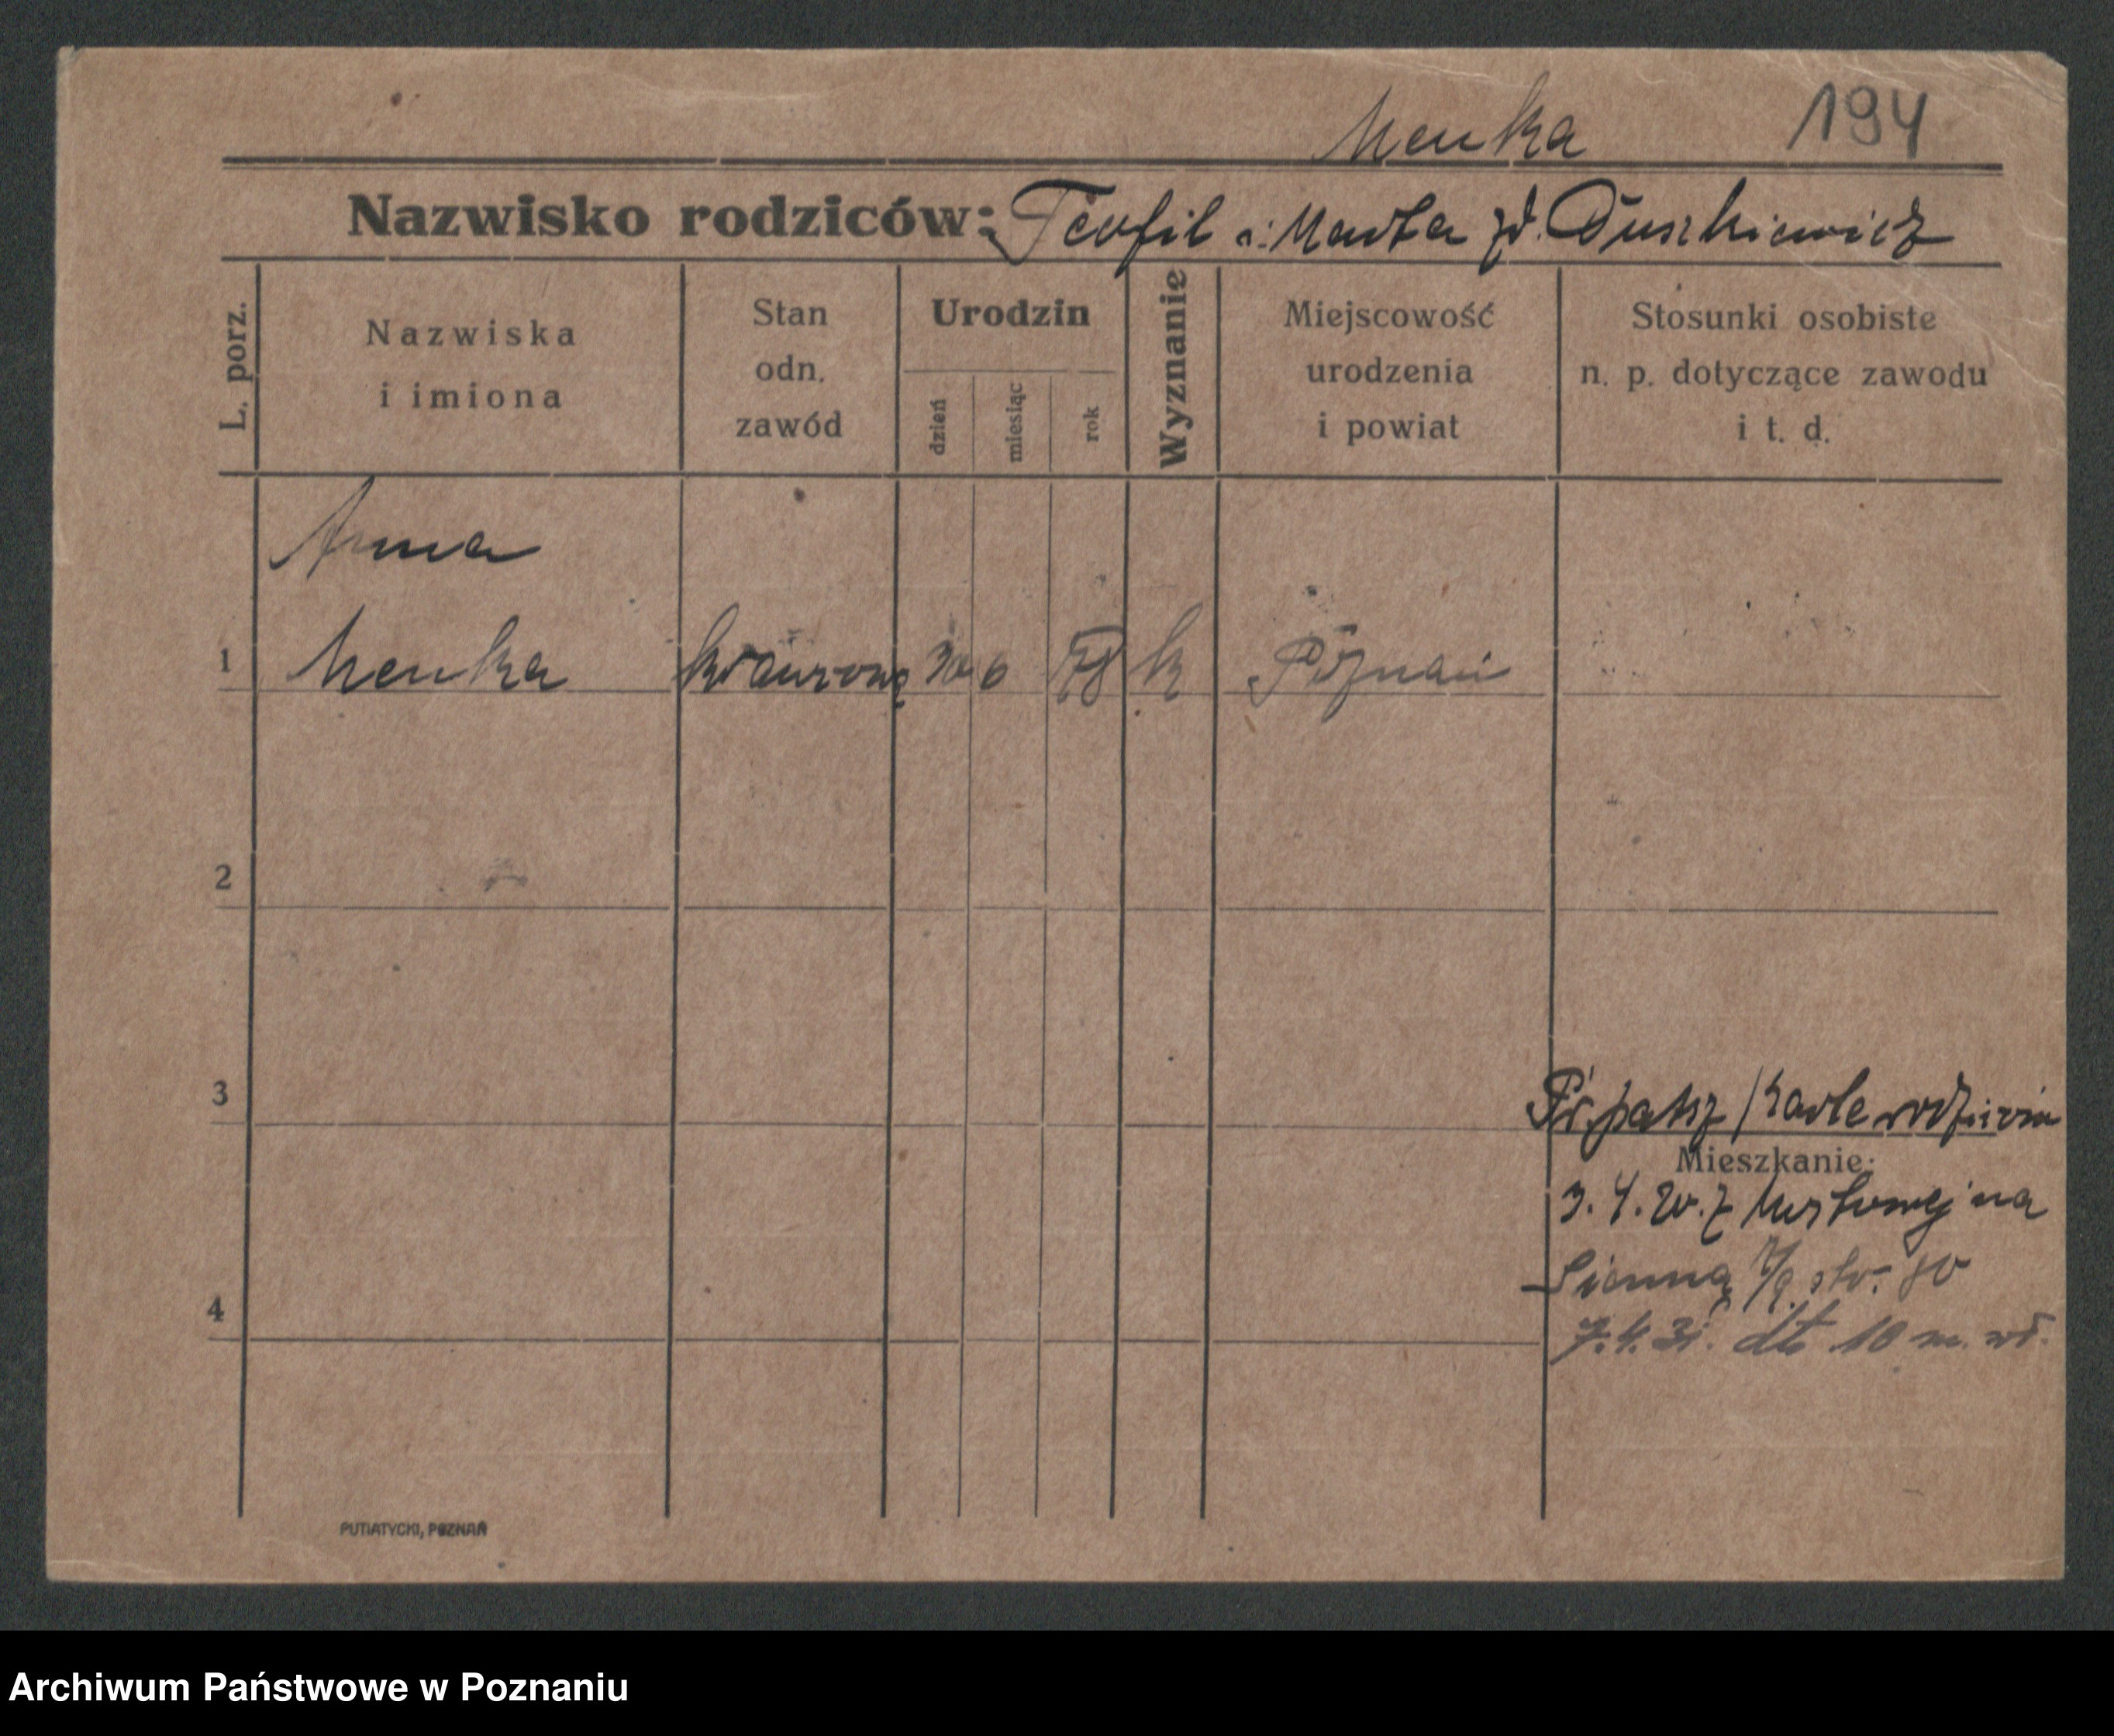 Menka 194
Nazwisko rodziców: Teofil i Marta zd. Duszkiewicz
L. porz.
Nazwiska
i imiona
Stan
odn.
zawód
Urodzin
dzień
miesiąc
rok
Wyznanie
Miejscowość
urodzenia
i powiat
Stosunki osobiste
n. p. dotyczące zawodu
i t. d.
Anna
1 Menka 30 6 78 k Poznań
2
3
patrz
Mieszkanie:
3. 4. 20. z na
Sienną 7/9 str. 80
7. 4. 31. 10 m.
4
PUTIATYCKI, POZNAŃ
Archiwum Państwowe w Poznaniu